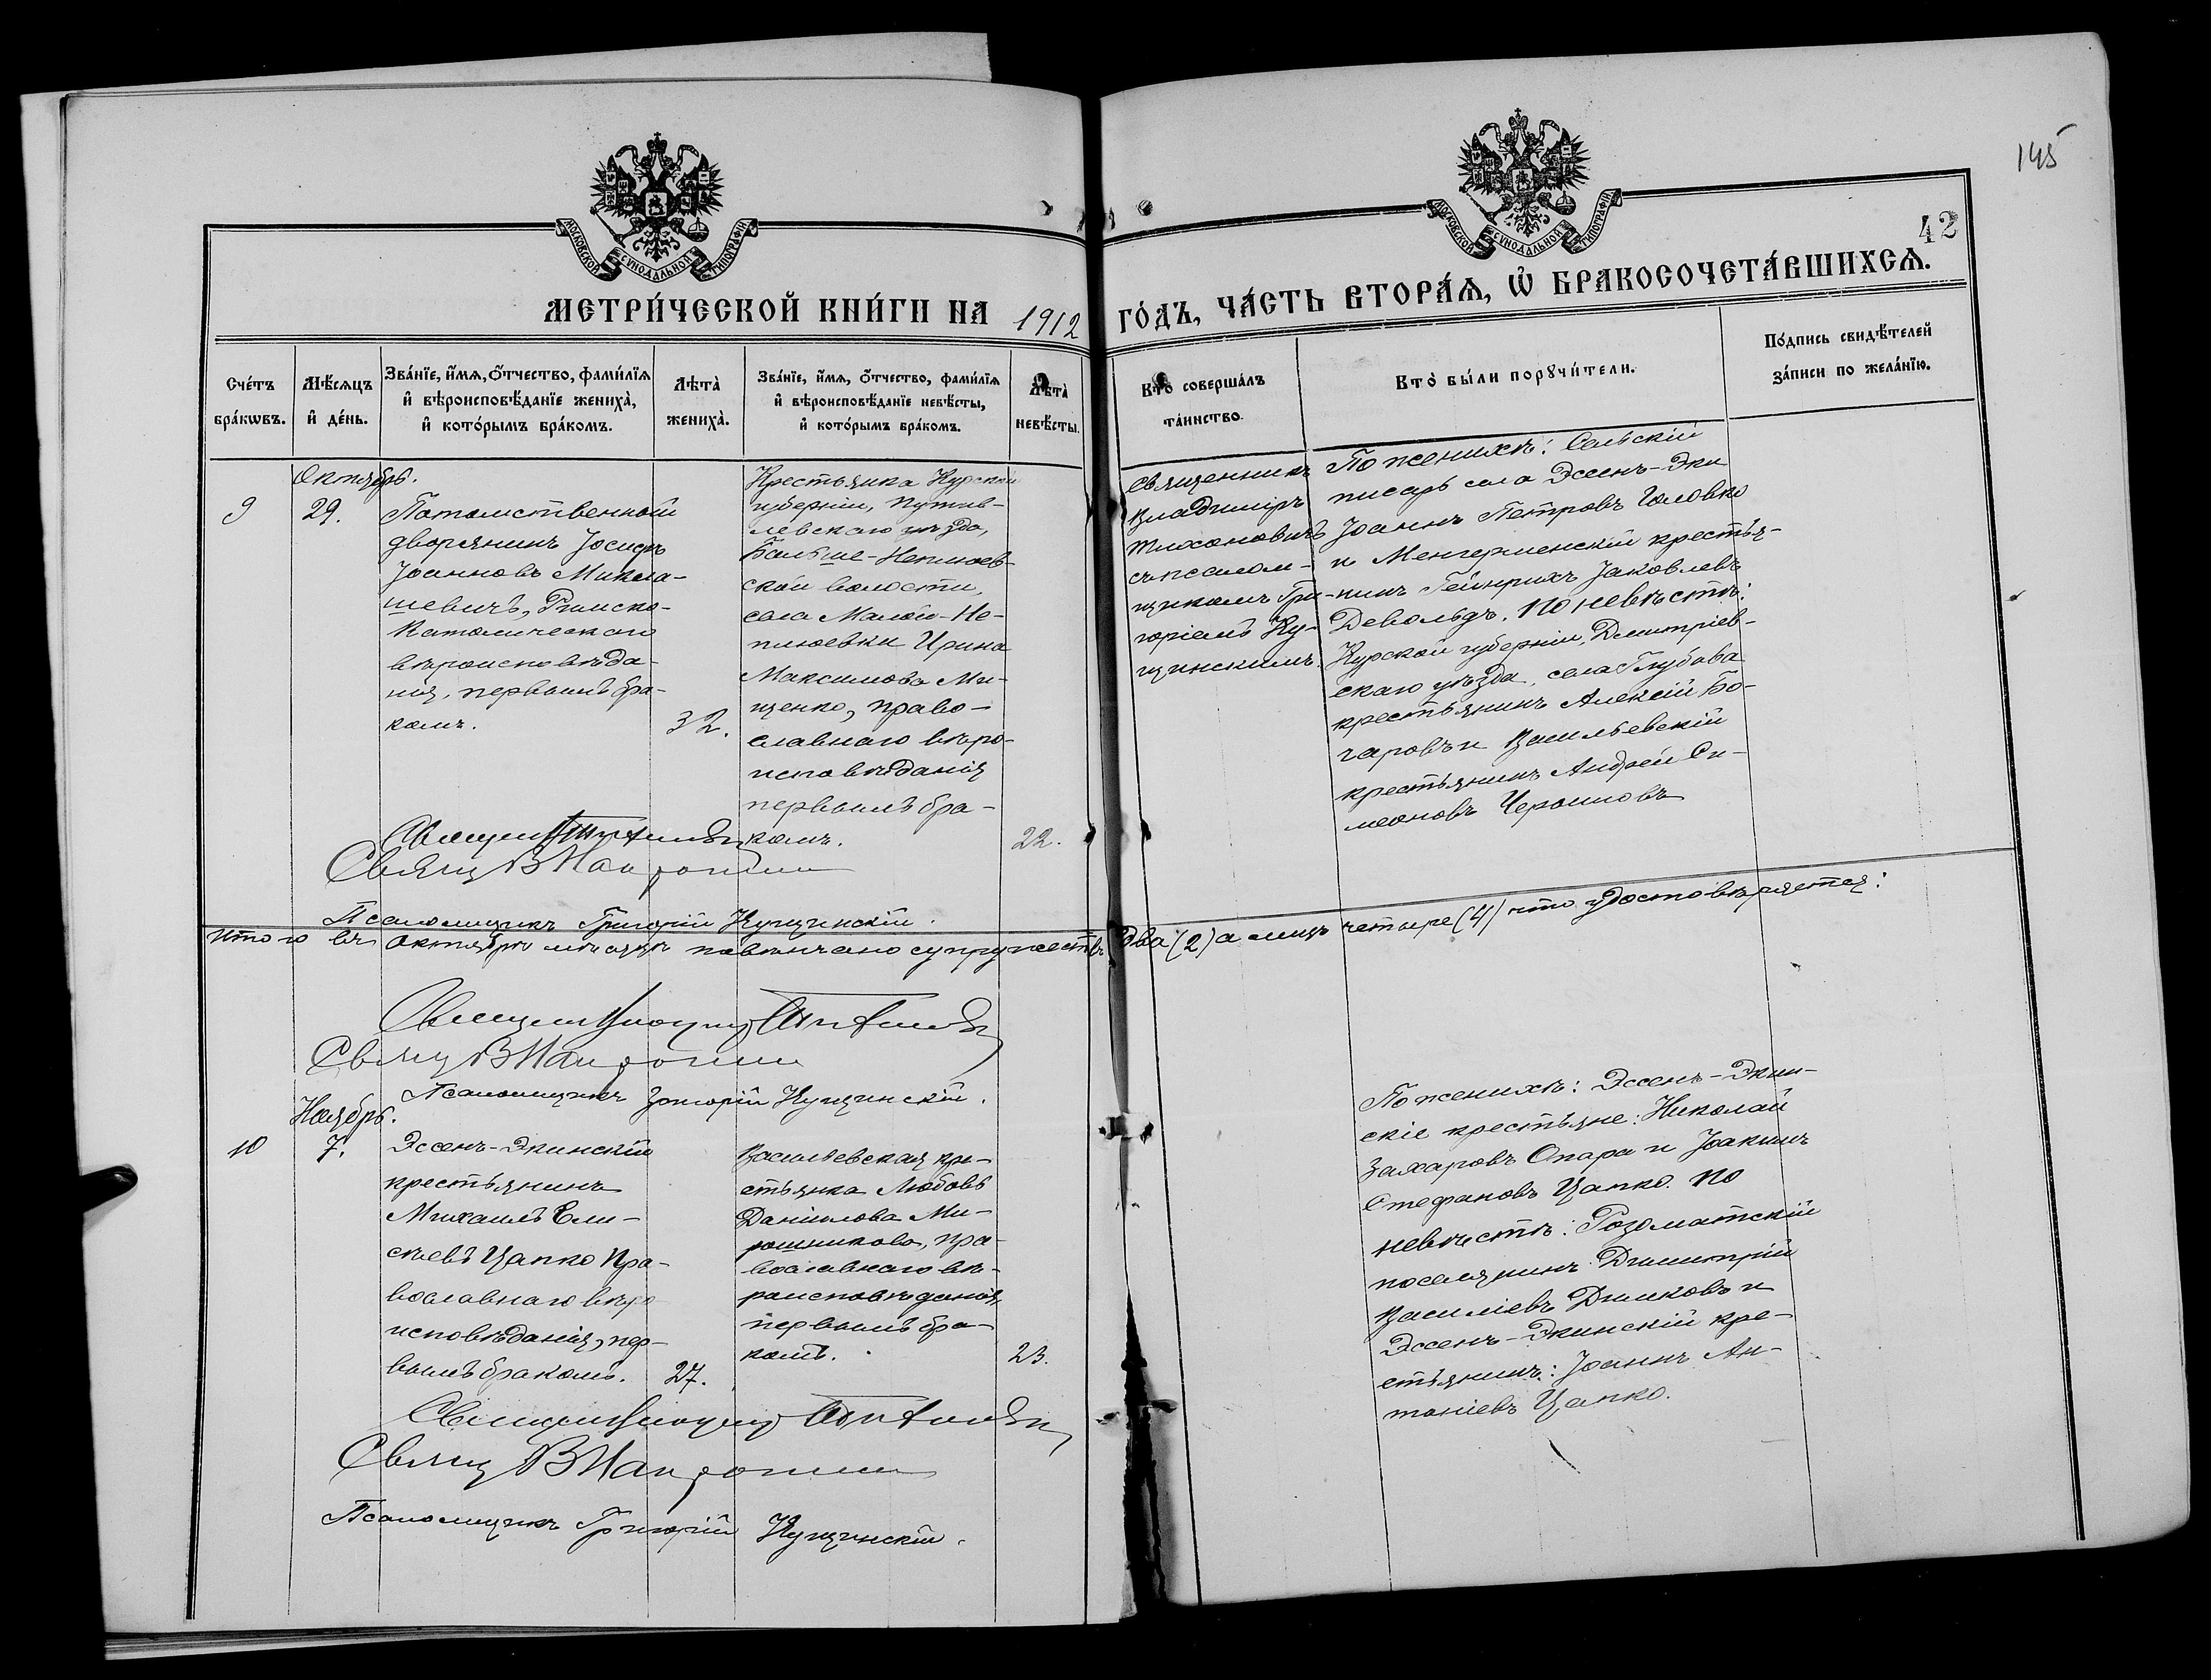 145
42
МОСКОВСКОЙ СѴНОДАЛЬНОЙ ТИПОГРАФІИ
МОСКОВСКОЙ СѴНОДАЛЬНОЙ ТИПОГРАФІИ
МЕТРИ́ЧЕСКОЙ КНИ́ГИ НА 1912 ГО́ДЪ, ЧА́СТЬ ВТОРА́Ѧ, Ѽ БРАКОСОЧЕТА́ВШИХСѦ.
Сче́тъ
бра́кѡвъ.
Мѣ́сяцъ
и҆ де́нь.
Зва́нїе, и҆́мѧ, ѻ҆́тчество, фами́лїѧ
и҆ вѣроисповѣ́данїе жениха̀,
и҆ кото́рымъ бра́комъ.
Лѣта̀
жениха̀.
Зва́нїе, и҆́мѧ, ѻ҆́тчество, фами́лїѧ
и҆ вѣроисповѣ́данїе невѣ́сты,
и҆ кото́рымъ бра́комъ.
Лѣта̀
невѣ́сты.
Кто̀ соверша́лъ
та́инство.
Кто̀ бы́ли порꙋчи́тели.
По́дпись свидѣ́телей
за́писи по жела́нїю.
Октябрь.
9
29.
Потомственный
дворянинъ Іосифъ
Іоанновъ Микла-
шевичъ, Римско-
Католическаго
вѣроисповѣда-
нія, первымъ бра-
комъ.
32.
Крестьянка Курской
губерніи, Путив-
левскаго уѣзда,
Больше-Неплюев-
ской волости,
села Малой-Не-
плюевки Ирина
Максимова Ми-
щенко, право-
славнаго вѣро-
исповѣданія
первымъ бра-
комъ.
22.
Священникъ
Владиміръ
Тихоновичъ
съ псалом-
щикомъ Гри-
горіемъ Ку-
щинскимъ.
По женихѣ: Сельскій
писарь села Эссенъ-Эки
Іоаннъ Петровъ Головко
и Менгерменскій крестья-
нинъ Гейнрихъ Яковлевъ
Девальдъ. По невѣстѣ:
Курской губерніи, Дмитріев-
скаго уѣзда, села Глубова
крестьянинъ Алексій Бо-
чаровъ и Васильевскій
крестьянинъ Андрей Си-
меоновъ
Свящ. В
Псаломщикъ Григорій Кущинскій.
Итого въ Октябрѣ мѣсяцѣ повѣнчано супружествъ два (2) а лицъ четыре (4) что удостовѣряется:
Свящ. В
Псаломщикъ Григорій Кущинскій.
Ноябрь.
10
7.
Эссенъ-Экинскій
крестьянинъ
Михаилъ Ели-
сѣевъ Цапко пра-
вославнаго вѣро
исповѣданія, пер-
вымъ бракомъ.
27.
Васильевская кре-
стьянка Любовь
Даніилова Ми-
рошникова, пра-
вославнаго вѣ-
роисповѣданія,
первымъ бра-
комъ.
23.
По женихѣ: Эссенъ-Экин-
скіе крестьяне: Николай
Захаровъ Опара и Іоакимъ
Стефановъ Цапко. По
невѣстѣ:
поселянинъ Димитрій
Василіевъ Дишковъ и
Эссенъ-Экинскій кре-
стьянинъ: Іоаннъ Ан-
тоніевъ Цапко.
Свящ. В
Псаломщикъ Григорій Кущинскій.